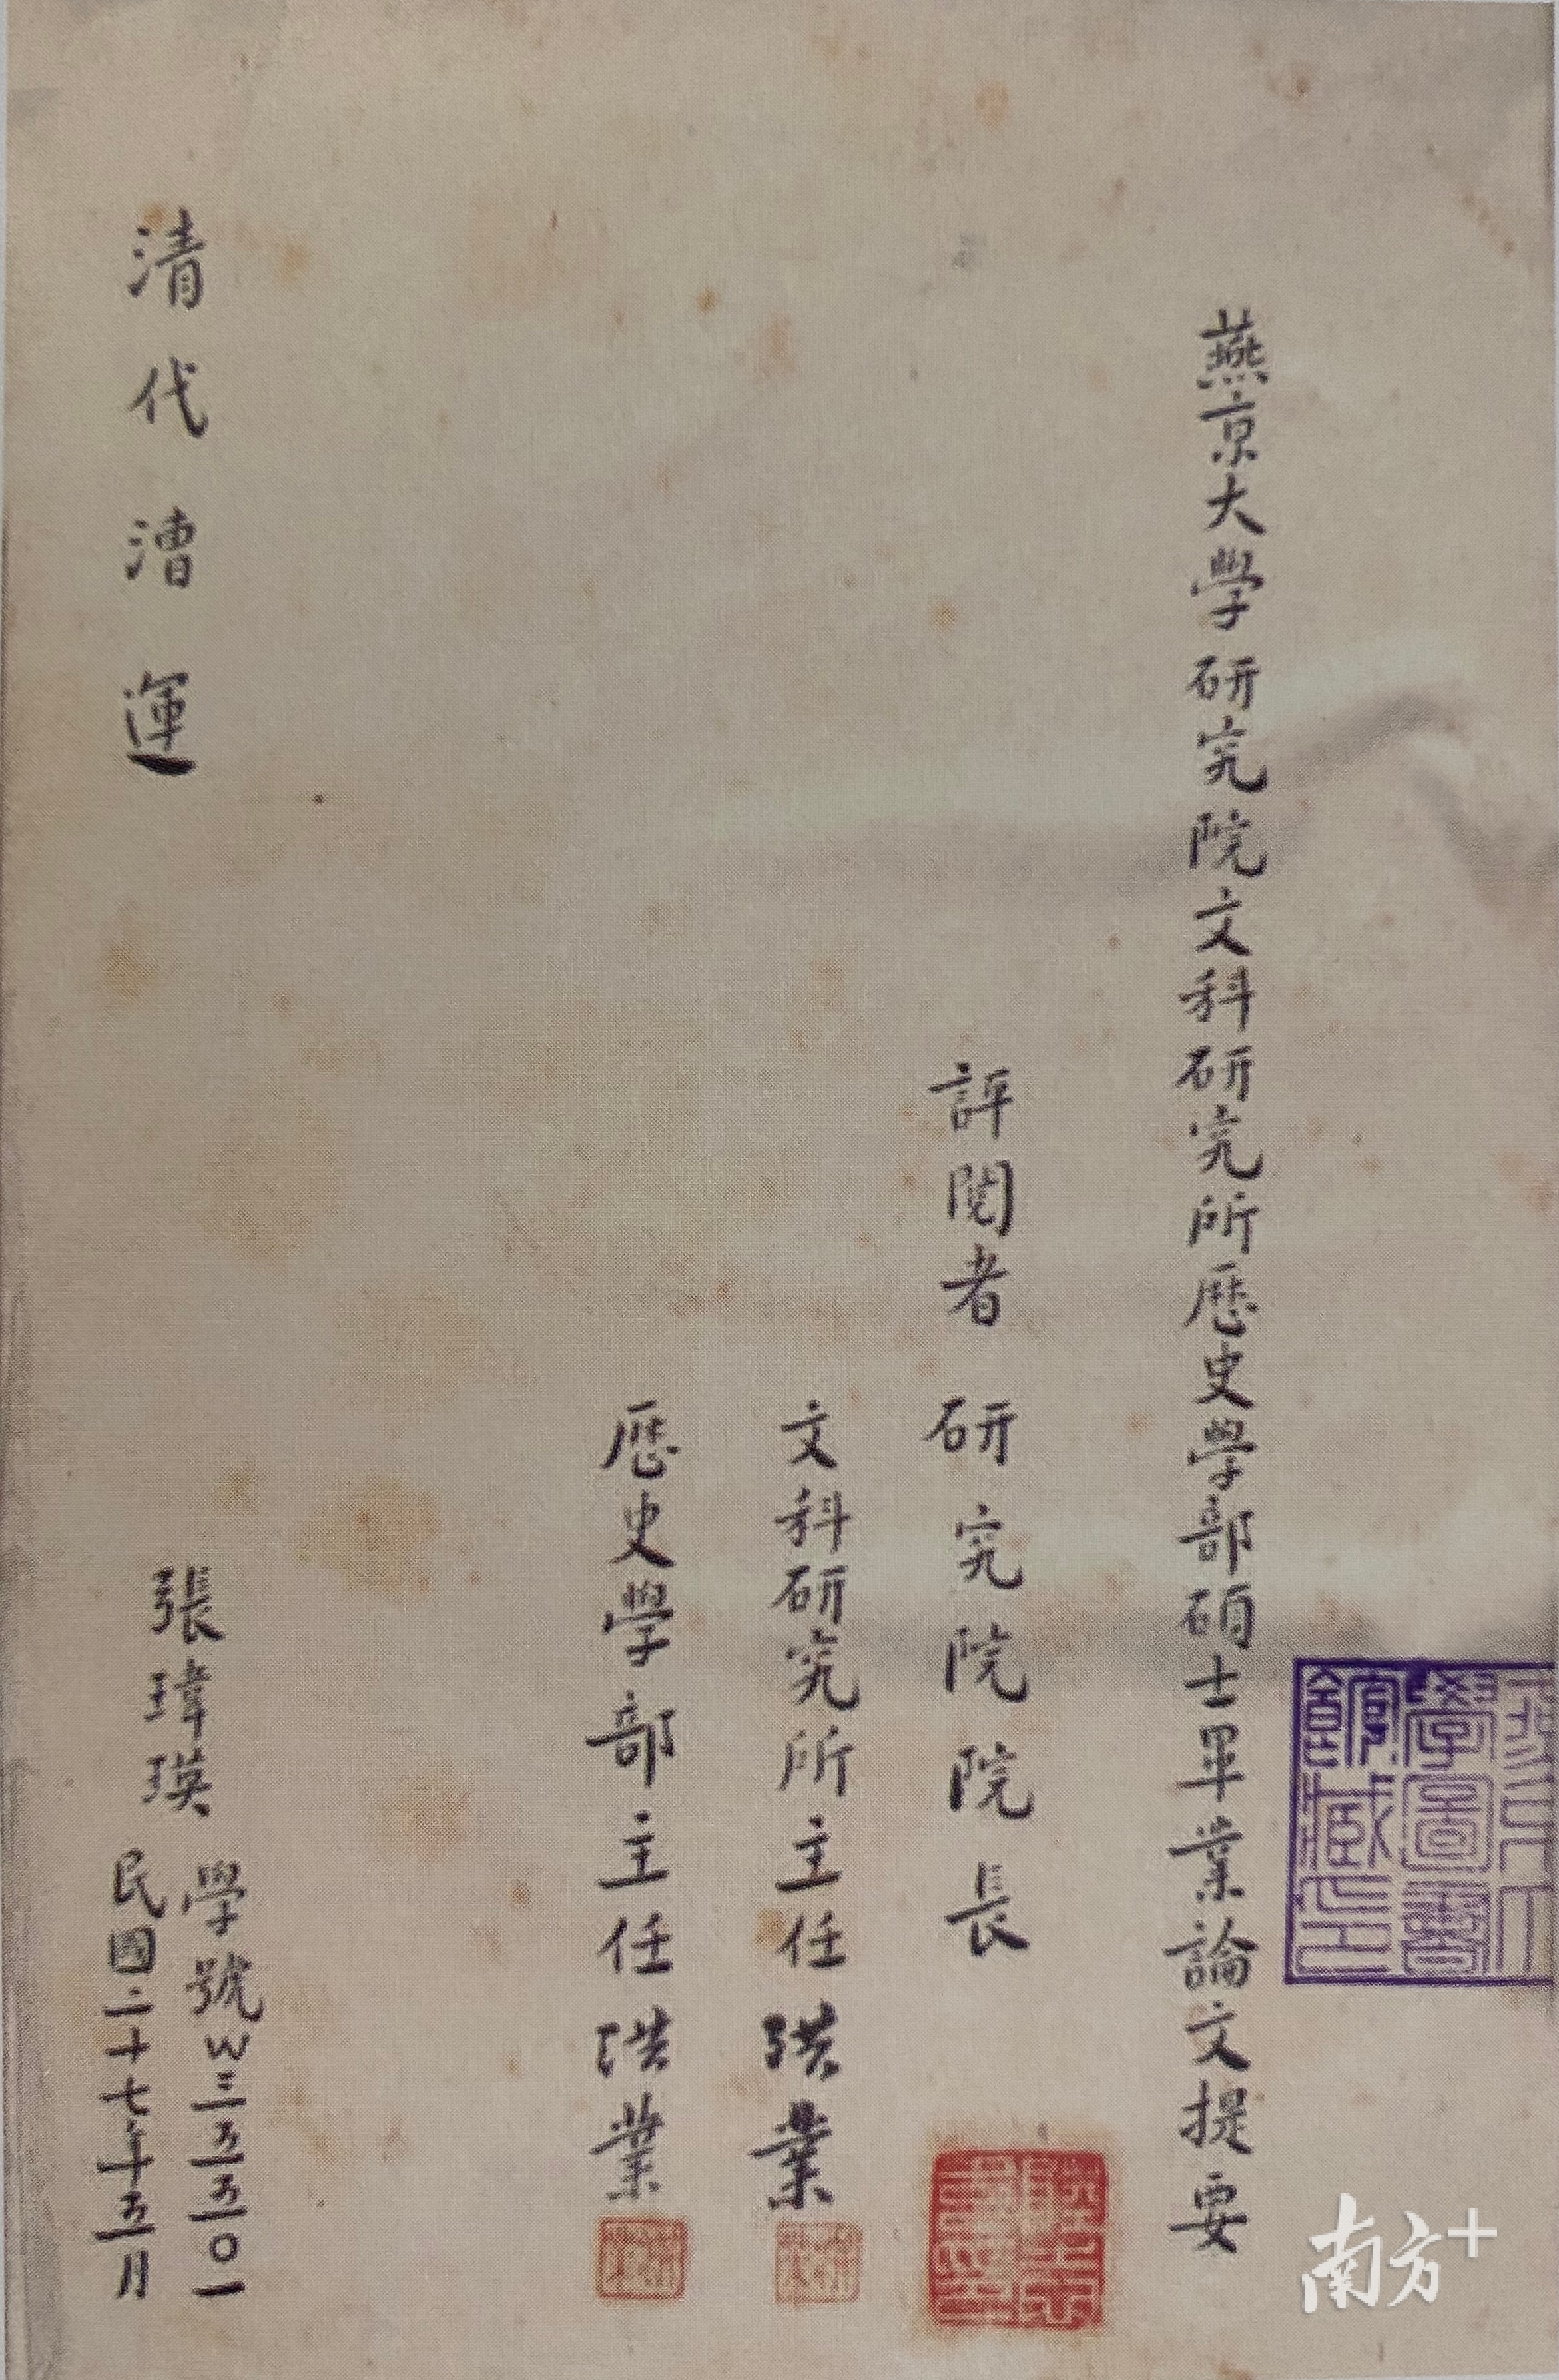 燕京大學研究院文科研究所歷史學部碩士畢業論文提要
評閱者 研究院院長
文科研究所主任 洪業
歷史學部主任 洪業
清代漕運
張瑋瑛
學號W三五五〇一
民國二十七年五月
學圖書
館藏印
南方+